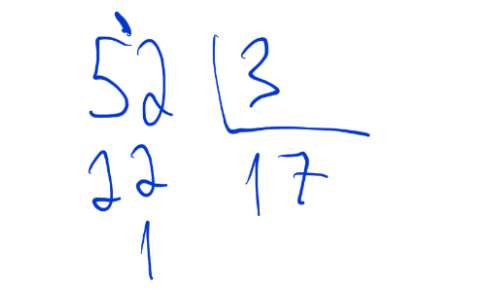 52 3
22 17
1